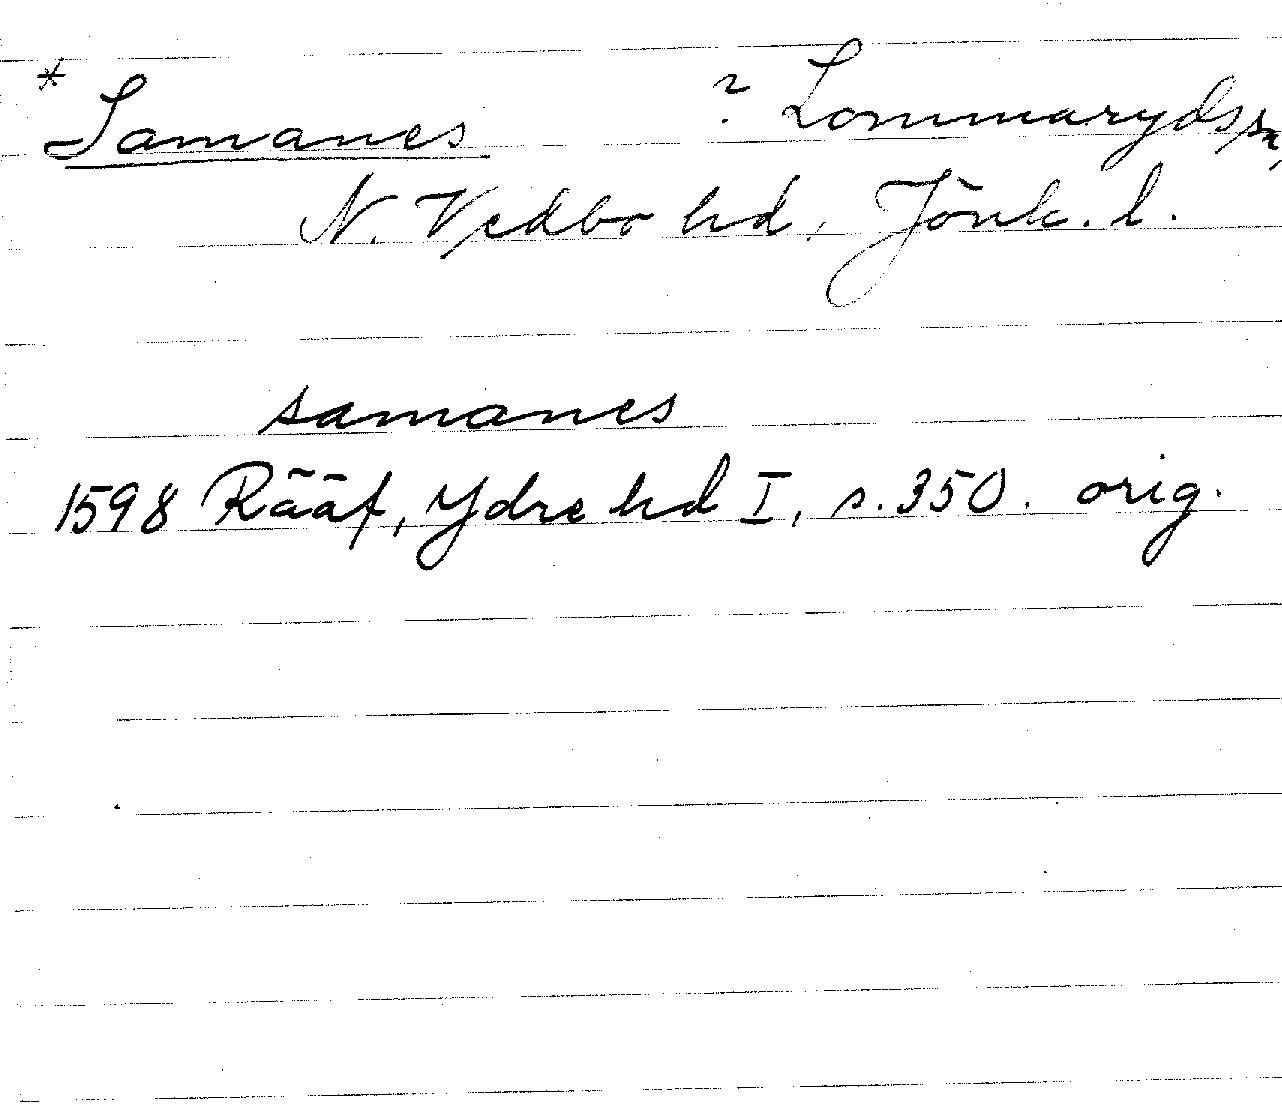 * Samanes ? Lommaryds sn,
N. Vedbo hd, Jönk. l.
samanes
1598 Rääf, Ydre hd I, s. 350. orig.